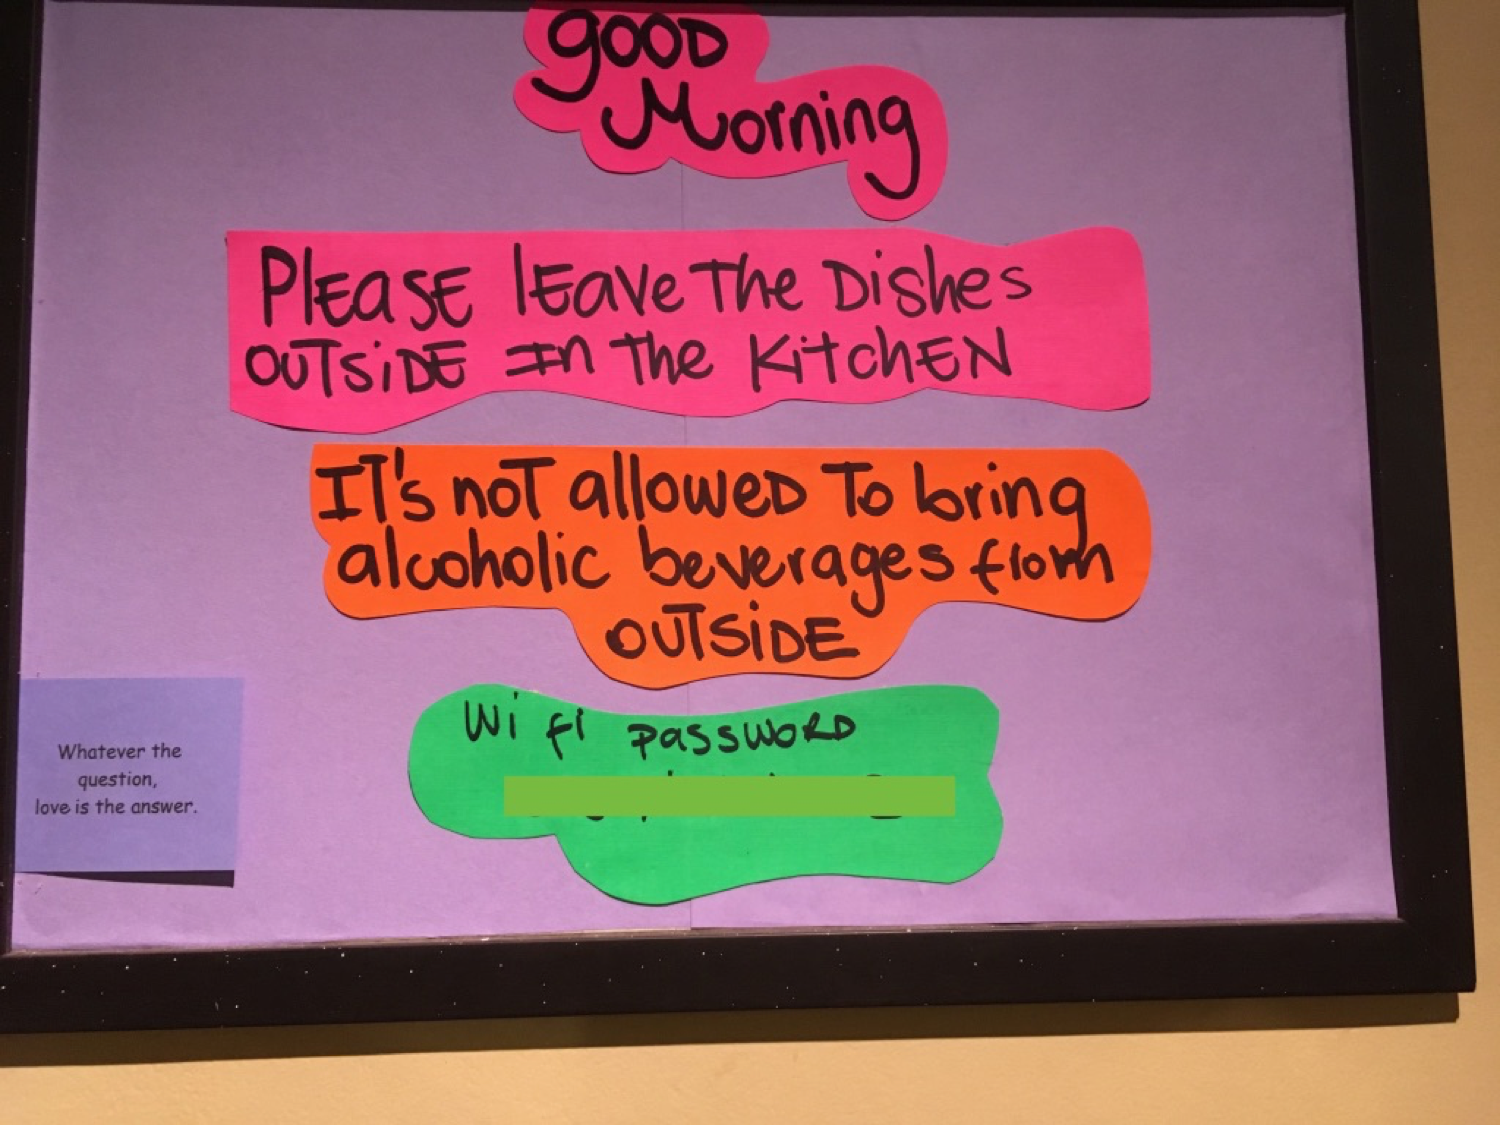 good
Morning
PlEasE lEave The Dishes
OUTSiDE In The KitchEN
IT's noT allowED To bring
alcoholic beverages from
OUTSiDE
Wi fi passwoRD
Whatever the
question,
love is the answer.